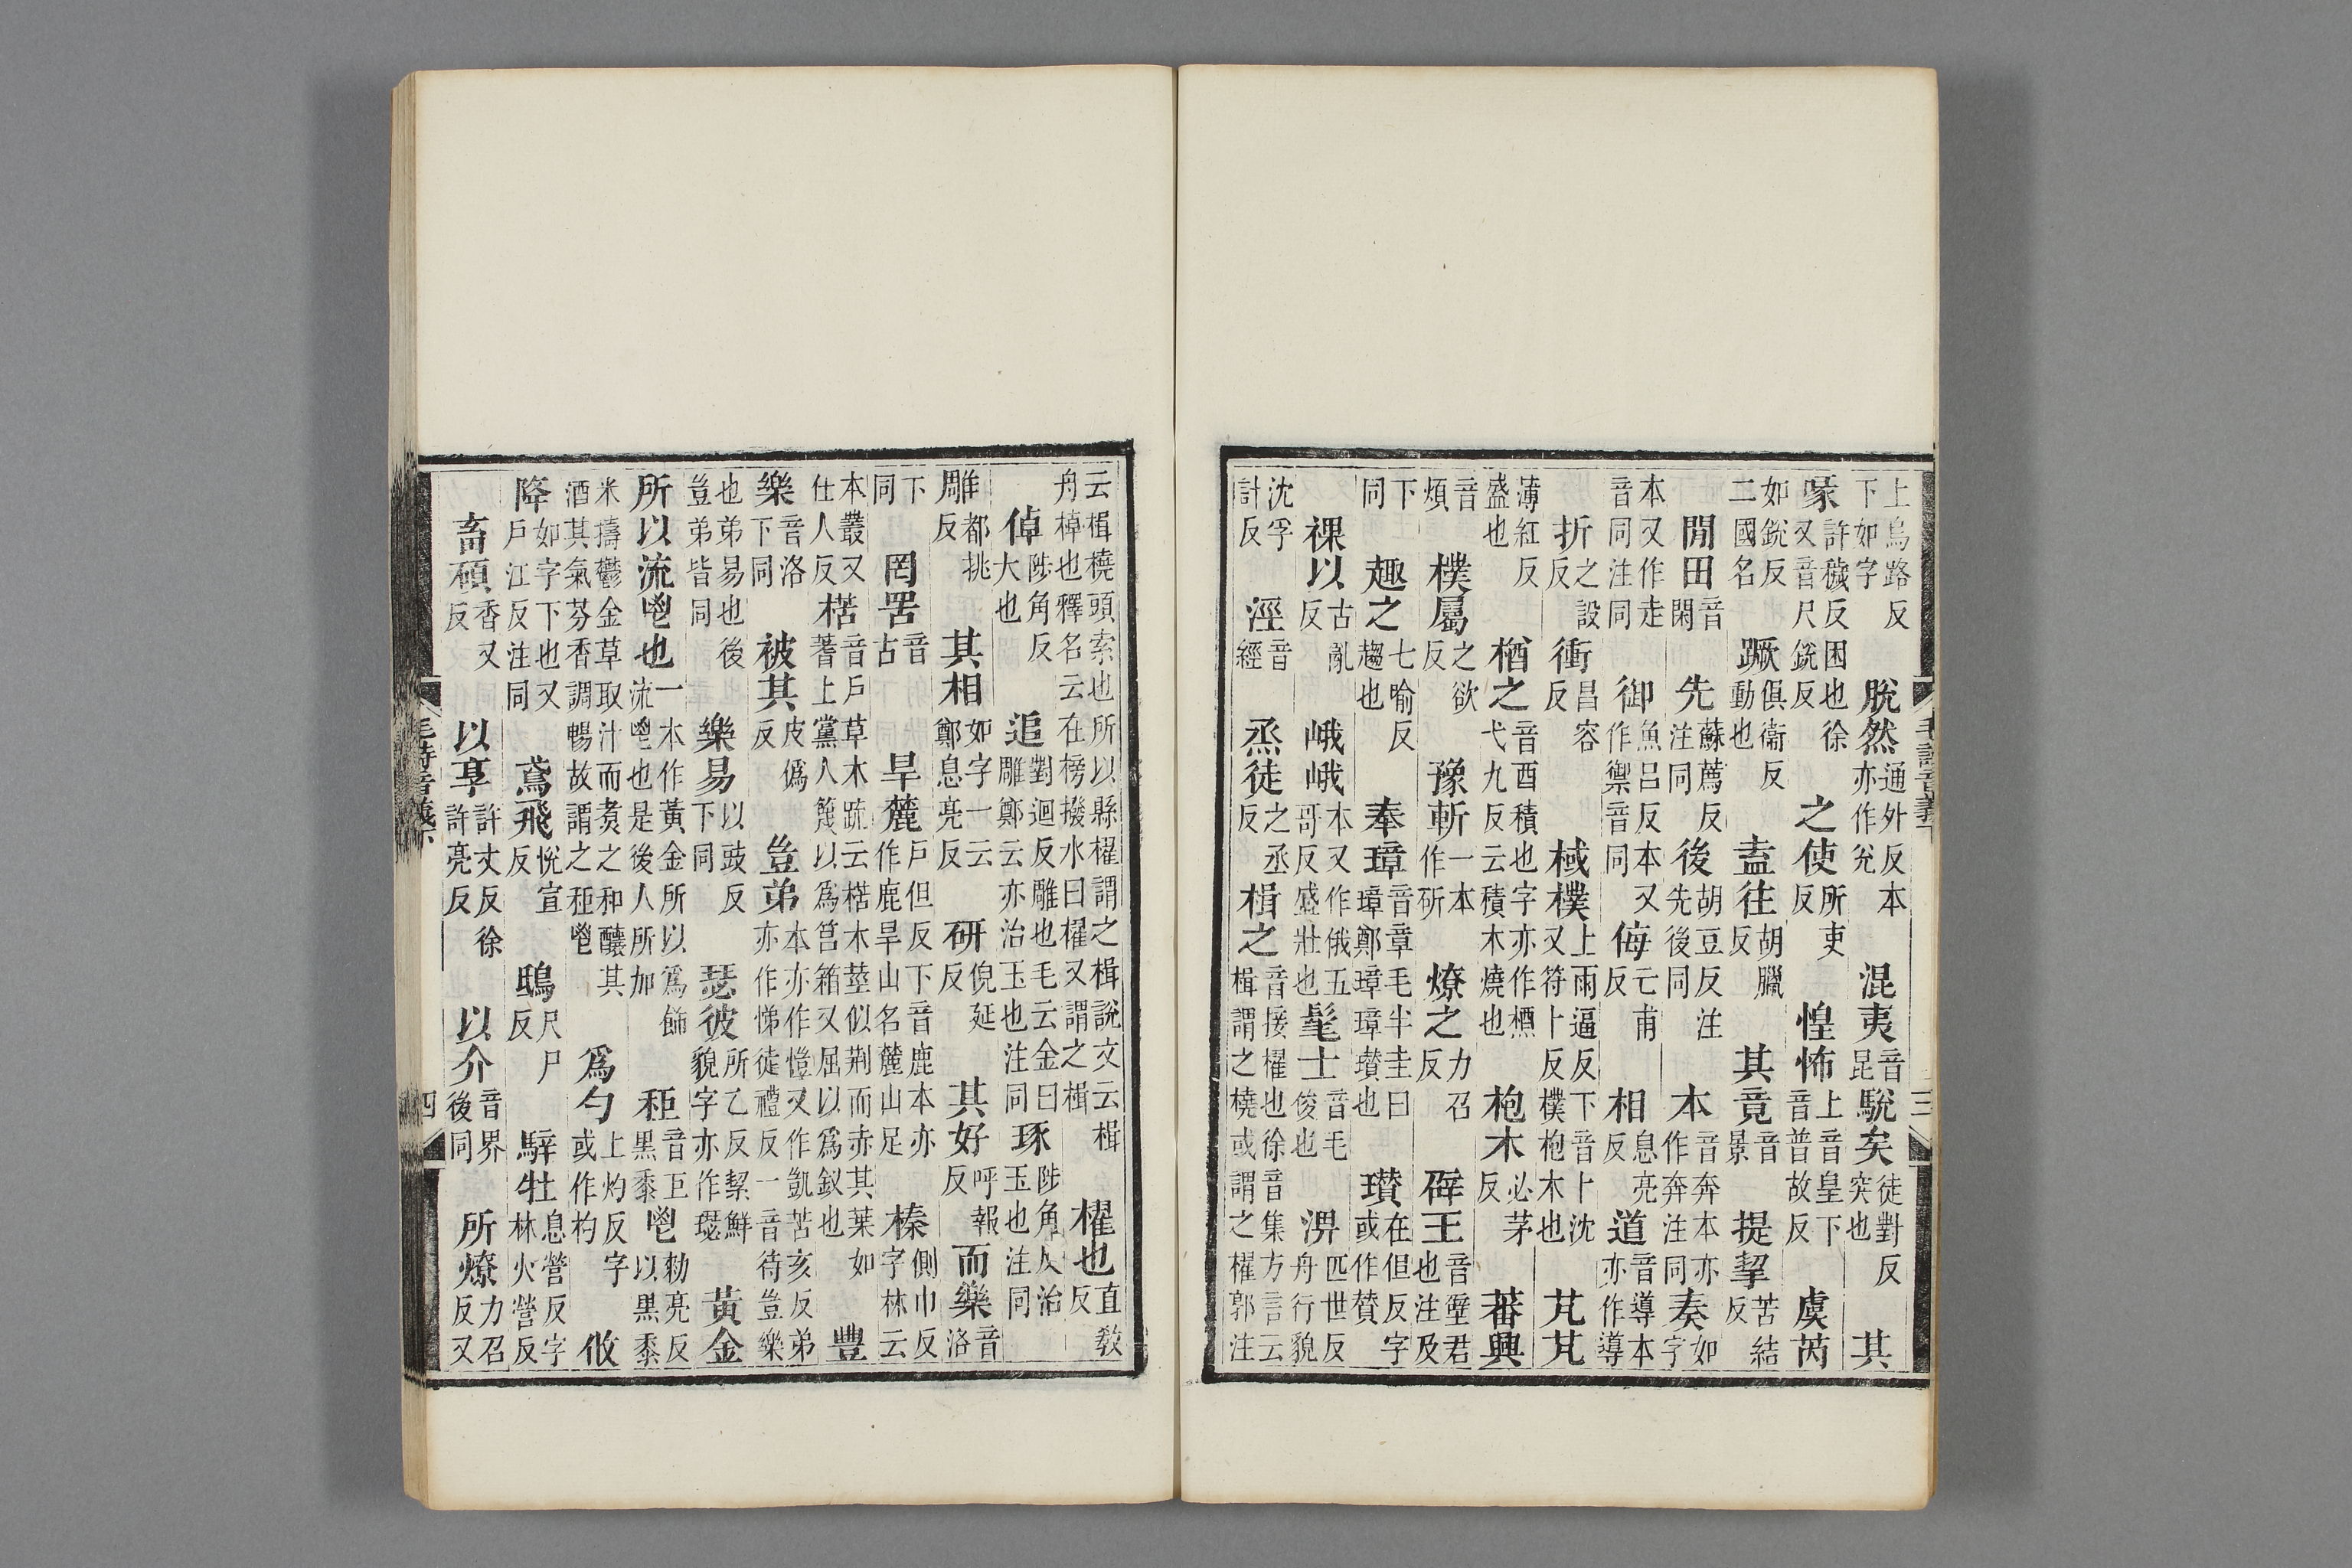 上烏路反下如字脫然通外反本亦作兊混夷音昆駾矣徒對反突也其
喙許穢反困也徐又音尺銳反之使所吏反惶怖上音皇下音普故反虞芮
如銳反二國名蹶俱衞反動也盍往胡臘反其竟音景提挈苦結反
閒田音閑先蘇薦反注同後胡豆反注先後同本音奔本亦作奔注同奏如字
本又作走音同注同御魚呂反本又作禦音同侮亡甫反相息亮反道音導本亦作導
折之設反衝昌容反棫樸上雨逼反下音卜沈又符卜反樸枹木也芃芃
薄紅反盛也槱之音酉積也字亦作櫄弋九反云積木燒也枹木必茅反蕃興
音煩樸屬之欲反豫斬一本作斫燎之力召反辟王音璧君也注及
下同趣之七喻反趨也奉璋音章毛半圭曰璋鄭璋璋瓚也瓚在但反字或作賛
祼以古亂反峨峨本又作俄五哥反盛壯也髦士音毛俊也淠匹世反舟行貌
沈孚計反涇音經烝徒之丞反楫之音接櫂也徐音集方言云楫謂之橈或謂之櫂郭注
毛詩音義下 三
云楫橈頭索也所以縣櫂謂之楫說文云楫舟棹也釋名云在榜撥水曰櫂又謂之楫櫂也直敎反
倬陟角反大也追對迴反雕也毛云金曰雕鄭云亦治玉也注同琢陟角反治玉也注同
雕都挑反其相如字一云鄭息亮反研倪延反其好呼報反而樂音洛
下同罔罟音古旱麓戶但反下音鹿本亦作鹿旱山名麓山足榛側巾反字林云
本叢又仕人反楛音戶草木疏云楛木莖似荆而赤其葉如蓍上黨人篾以爲筥箱又屈以爲釵也豐
樂音洛下同被其皮僞反豈弟本亦作愷又作凱苦亥反弟亦作悌徒禮反一音待豈樂
也弟易也後豈弟皆同樂易以豉反下同瑟彼所乙反絜鮮貌字亦作璱黃金
所以流鬯也一本作黃金所以爲飾流鬯也是後人所加秬音巨黑黍鬯勑亮反以黑黍
米擣鬱金草取汁而煑之和釀其酒其氣芬香調暢故謂之秬鬯爲勺上灼反字或作杓攸
降如字下也又戶江反注同鳶飛悅宣反鴟尺尸反騂牡息營反字林火營反
畜碩香又反以享許丈反徐許亮反以介音界後同所燎力召反又
毛詩音義下 四